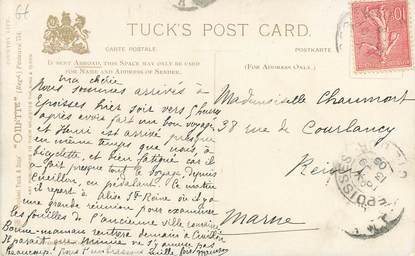 TUCK'S POST CARD.
CARTE POSTALE.
POSTKARTE.
IF SENT ABROAD, THIS SPACE MAY ONLY BE USED
FOR NAME AND ADDRESS OF SENDER.
(FOR ADDRESS ONLY.)
"OILETTE"
ma chérie
Nous sommes arrivés à
Epoisses hier soir vers
après avoir fait un bon voyage
et Henri est arrivé presque
en même temps que nous, à
bicyclette, et bien fatigué car il
a fait presque tout le voyage, depuis
en pédalant. Ce matin
il repart à Alise Ste Reine où il y a
une grande réunion pour examiner
les fouilles de l'ancienne ville
Bonne-maman rentrera demain à
Il paraît
beaucoup.
Mademoiselle Chaumont
38 rue de Courlancy
Reims
Marne
10